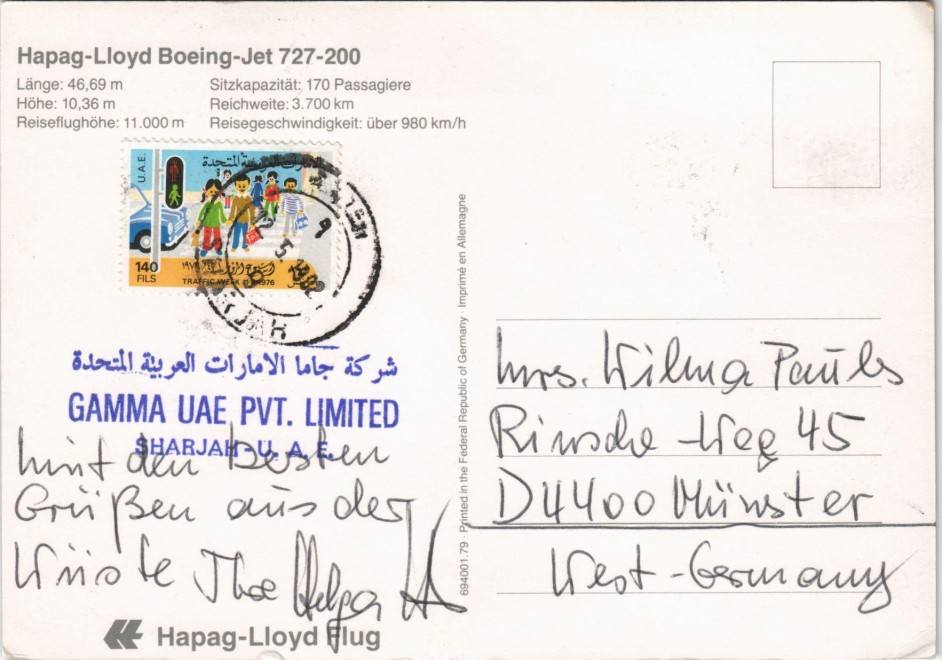 Hapag-Lloyd Boeing-Jet 727-200
Länge: 46,69 m Sitzkapazität: 170 Passagiere
Höhe: 10,36 m Reichweite: 3.700 km
Reiseflughöhe: 11.000 m Reisegeschwindigkeit: über 980 km/h
U.A.E.
الامارات العربية المتحدة
140
FILS
TRAFFIC WEEK 1976
شركة جاما الامارات العربية المتحدة
GAMMA UAE PVT. LIMITED
SHARJAH - U. A. E.
mit den besten
Grüßen aus der
Wüste Ihre Helga
Hapag-Lloyd Flug
694001.79 · Printed in the Federal Republic of Germany · Imprimé en Allemagne
Mrs. Wilma
Rinsche-Weg 45
D4400 Münster
West-Germany